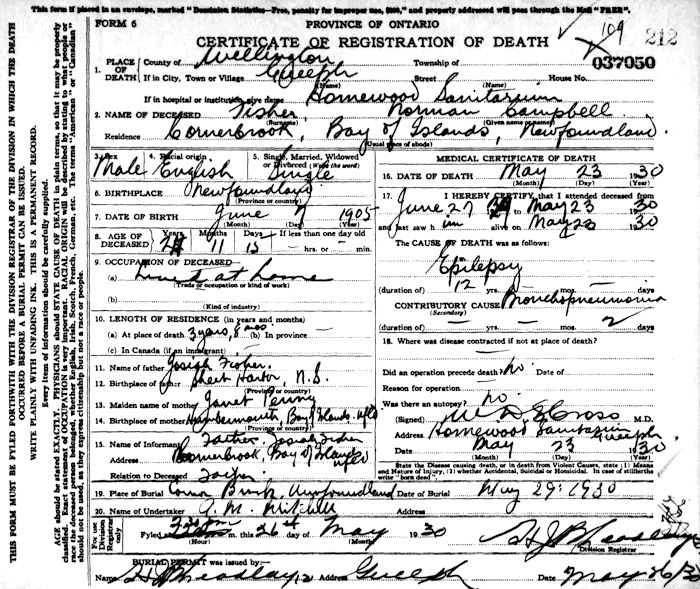 This form if placed in an envelope, marked "Dominion Statistics—Free, penalty for improper use, $300," and properly addressed will pass through the Mail "FREE".
FORM 6
PROVINCE OF ONTARIO
CERTIFICATE OF REGISTRATION OF DEATH
109
212
037050
THIS FORM MUST BE FYLED FORTHWITH WITH THE DIVISION REGISTRAR OF THE DIVISION IN WHICH THE DEATH
OCCURRED BEFORE A BURIAL PERMIT CAN BE ISSUED.
WRITE PLAINLY WITH UNFADING INK. THIS IS A PERMANENT RECORD.
Every item of information should be carefully supplied.
AGE should be stated EXACTLY. PHYSICIANS should STATE CAUSE OF DEATH in plain terms, so that it may be properly
classified. Exact statement of OCCUPATION is very important. RACIAL ORIGIN will be described by stating to what people or
race the deceased person belonged, whether English, Irish, Scotch, French, German, etc. The terms "American" or "Canadian"
should not be used, as they express citizenship but not a race or people.
1. PLACE OF DEATH County of Wellington Township of
If in City, Town or Village Guelph Street House No.
(Name) (Name)
If in hospital or institution give name Homewood Sanitarium
2. NAME OF DECEASED Fisher Norman Campbell
(Surname) (Given name or names)
Residence Cornerbrook, Bay of Islands, Newfoundland.
(Usual place of abode)
3. Sex Male
4. Racial origin. English
5. Single, Married, Widowed or Divorced (Write the word) Single
6. BIRTHPLACE Newfoundland
(Province or country)
7. DATE OF BIRTH June 7 1905
(Month) (Day) (Year)
8. AGE OF DECEASED Years 24 Months 11 Days 15 If less than one day old
hrs. or min.
9. OCCUPATION OF DECEASED
(a) Lived at home
(Trade or occupation or kind of work)
(b)
(Kind of industry)
10. LENGTH OF RESIDENCE (in years and months)
(a) At place of death 3 years, 8 mos (b) In province
(c) In Canada (if an immigrant)
11. Name of father Josiah Fisher
12. Birthplace of father Sheet Harbor, N.S.
(Province or country)
13. Maiden name of mother Janet Penny
14. Birthplace of mother Bay of Islands Nfld
(Province or country)
15. Name of Informant Father, Josiah Fisher
Address Cornerbrook, Bay of Islands Nfld
Relation to Deceased Father
19. Place of Burial Corner Brook, Newfoundland Date of Burial May 29: 1930
20. Name of Undertaker A. M. Mitchell Address
For use of Division Registrar only
Fyled at in this 26st day of May 1930
(Hour) (Month)
Division Registrar
BURIAL PERMIT was issued by:—
Name Address Guelph Date May 26/30
MEDICAL CERTIFICATE OF DEATH
16. DATE OF DEATH May 23 1930
(Month) (Day) (Year)
17. I HEREBY CERTIFY that I attended deceased from
June 27 to May 23 1930
and last saw him alive on May 23 1930
The CAUSE OF DEATH was as follows:
Epilepsy
(duration of) 12 yrs. mos. days
CONTRIBUTORY CAUSE Bronchopneumonia
(Secondary)
(duration of) yrs. mos. 2 days
18. Where was disease contracted if not at place of death?
Did an operation precede death? No Date of
Reason for operation
Was there an autopsy? No
(Signed) M.D.
Address Homewood Sanitarium Guelph
Date May 23 1930
State the Disease causing death, or in death from Violent Causes, state (1) Means
and Nature of Injury, (2) whether Accidental, Suicidal or Homicidal. In case of stillbirths
write "born dead".